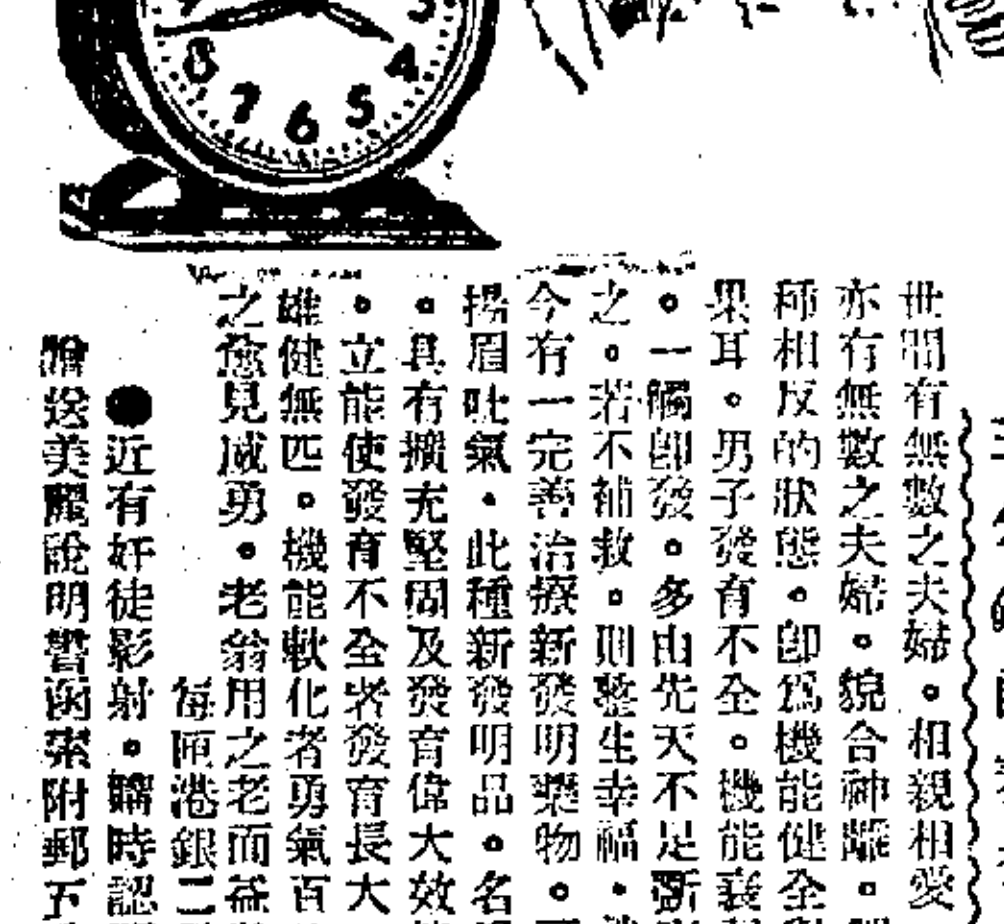 世間有無數之夫婦。相親相愛
亦有無數之夫婦。貌合神離。
種相反的狀態。卽爲機能健全
果耳。男子發育不全。機能衰
。一觸卽發。多由先天不足
之。若不補救。則整生幸福。
今有一完善治療新發明藥物。
揚眉吐氣。此種新發明品。名
。具有擴充堅固及發育偉大效
。立能使發育不全者發育長大
雄健無匹。機能軟化者勇氣百
之愈見威勇。老翁用之老而益
每匣港銀二
●近有奸徒影射。購時認
贈送美麗說明書函索附郵五
8 7 6 5 4